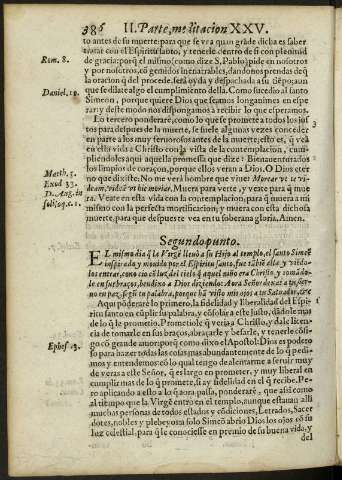 386 II. Parte, meditacion XXV.
to antes de su muerte: para que se vea quan grãde dicha es saber
tratar con el Espiritu santo, y tenerle dentro de si con plenitud
Rom. 8.
de gracia: porq̃ el mismo (como dize S. Pablo) pide en nosotros
y por nosotros, cõ gemidos inenarrables, dandonos prendas deq̃
la oracion q̃ del procede, será oyda y despachada a su tiẽpo; aun
Daniel. 12.
que se dilate algo el cumplimiento della. Como sucedio al santo
Simeon, porque quiere Dios que seamos longanimes en espe-
rar; y deste modo nos dispongamos à recibir lo que esperamos.
3
Lo tercero ponderaré, como lo que se promete a todos los jus
tos para despues de la muerte, se suele algunas vezes conceder
en parte a los muy feruorosos antes de la muerte; esto es, q̃ veã
en esta vida a Christo con la vista de la contemplacion, cum-
pliendoles aqui aquella promessa que dize: Bienauenturados
Matth. 5.
los limpios de coraçon, porque ellos veran a Dios. O Dios eter
Exod 33.
no que dixiste: No me verá hombre que viua:
D. Aug. in
soliloq. c. 1.
Muera para verte, y vea te para q̃ mue
ra. Veate en esta vida con la contemplacion, para q̃ muera a mi
mismo con la perfecta mortificacion; y muera con esta dichosa
muerte, para que despues te vea en tu soberana gloria, Amen.
Segundo punto.
EL mismo dia q̃ la Virgẽ lleuò a su Hijo al templo, el santo Simeõ
inspirado y mouido por el Espiritu santo, fue tãbiẽ allà, y viẽdo-
los entrar, conocio cõ luz del cielo q̃ aquel niño era Christo, y tomãdo-
le en sus braços, bendixo a Dios diziendo: Aora Señor dexas a tu sier-
uo en paz, segũ tu palabra, porque hã visto mis ojos a tu Saluador, &c.
Aqui põderarè lo primero, la fidelidad y liberalidad del Espiri-
tu santo en cũplir su palabra, y cõsolar a este justo, dãdole mas
de lo q̃ le prometio. Prometiole q̃ veria a Christo, y dale licen-
cia de tomarle en sus braços, abraçarle y besarle, y tenerle cõsi-
Ephes. 3.
go cõ grande amor: porq̃ como dixo el Apostol: Dios es podero
so para hazer todas las cosas mas abundantemente de lo q̃ pedi-
mos y entendemos: cõ lo qual tengo de alentarme a seruir muy
de veras a este Señor, q̃ es largo en prometer, y muy liberal en
cumplir mas de lo q̃ promete, si ay fidelidad en el q̃ recibe. Pe-
ro aplicando a esto a lo q̃ aora passa, ponderarè, que assi como
al tiẽpo que la Virgẽ entrò en el templo, aunque estauan alli
muchas personas de todos estados y cõdiciones, Letrados, Sacer
dotes, nobles y plebeyos a solo Simeõ abrio Dios los ojos cõ su
luz celestial, para q̃ le conociesse en premio de su buena vida, y
del